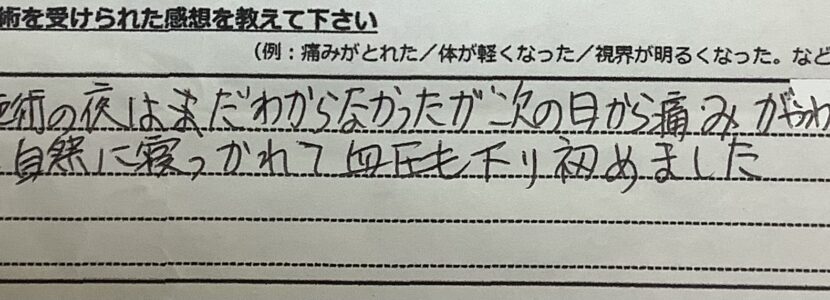 術を受けられた感想を教えて下さい
(例：痛みがとれた／体が軽くなった／視界が明るくなった。など
術の夜はまだわからなかったが次の日から痛みがやわ
自然に寝つかれて血圧も下り初めました